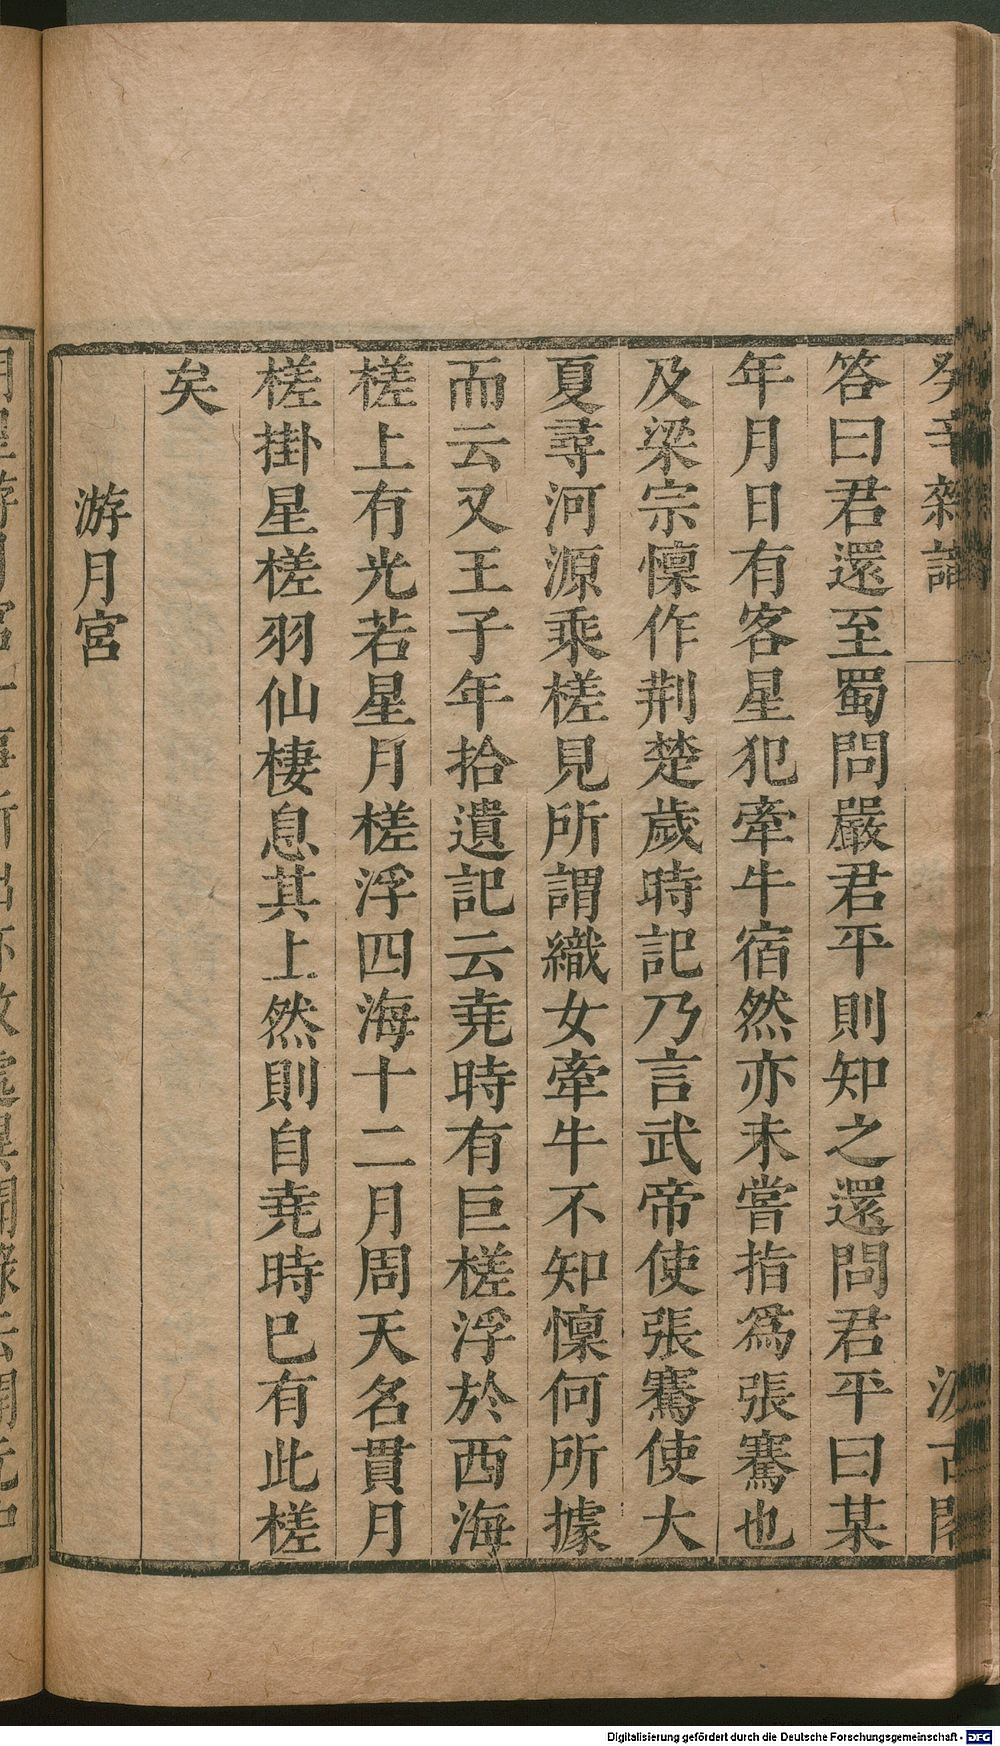 癸辛雜識
汲古閣
答曰君還至蜀問嚴君平則知之還問君平曰某
年月日有客星犯牽牛宿然亦未嘗指爲張騫也
及梁宗懔作荆楚歲時記乃言武帝使張騫使大
夏尋河源乘槎見所謂織女牽牛不知懔何所據
而云又王子年拾遺記云尭時有巨槎浮於西海
槎上有光若星月槎浮四海十二月周天名貫月
槎掛星槎羽仙棲息其上然則自尭時巳有此槎
矣
游月宮
Digitalisierung gefördert durch die Deutsche Forschungsgemeinschaft - DFG